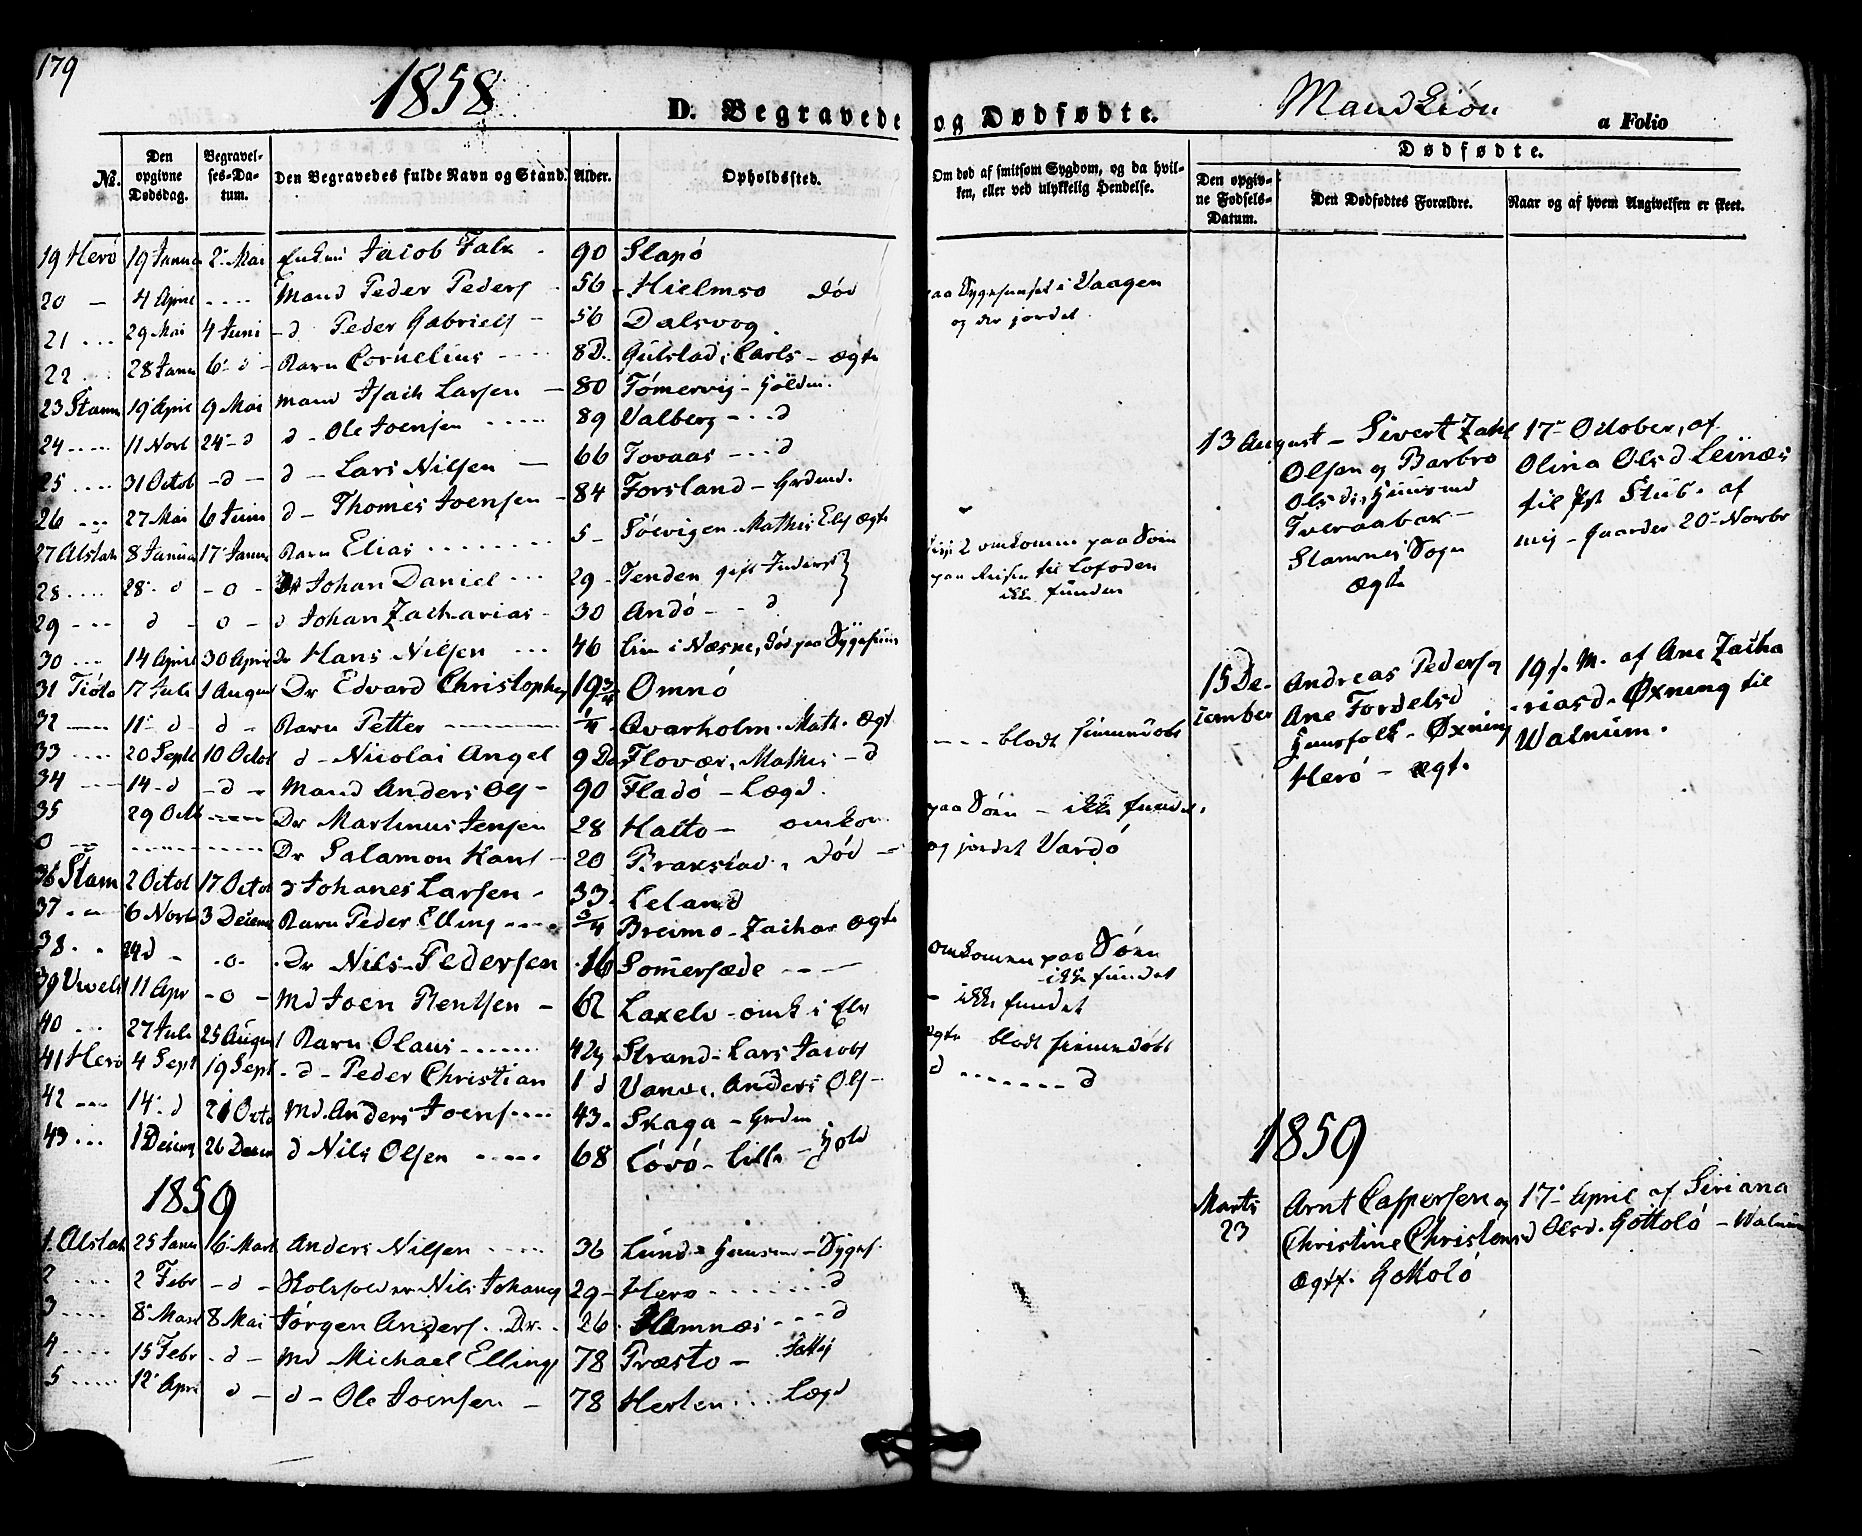 179
1858
D. Begravede og Dødfødte.
Mandkiøn
a Folio
No.
Den opgivne Dødsdag.
Begravelses-Datum.
Den Begravedes fulde Navn og Stand.
Alder.
Opholdssted.
Om død af smitsom Sygdom, og da hvilken, eller ved ulykkelig Hendelse.
Dødfødte.
Den opgivne Fødsels-Datum.
Den Dødfødtes Forældre.
Naar og af hvem Angivelsen er skeet.
19 Herö 19 Janua 2 Mai Jacob Falk 90 Slapö
20 — 4 April .... Mand Peder Peders 56 Hielmso död paa i Vaagen
og der jordet
21 ... 29 Mai 4 Juni - d Peder Gabriels 56 Dalsvog
22 ... 28 Janu 6 - d - Barn Cornelius .... 8 D. Gulstad, Carls - ægte
23 Stamn 19 April 9 Mai Mand Isach Larsen 80 Tömervig
24 .... 11 Novb 24 - d d - Ole Joensen ..... 89 Valberg - .. d
25 .... 31 Octob - d - d - Lars Nilsen 66 Tovaas - .. d
26 ... 27 Mai 6 Juni d - Thomes Joensen 84 Forsland
27 Alstah 8 Janua 17 Janua Barn Elias ........ 5 - Söevigen Mathis Els ægte
28 .... 28 d - o - Dr Johan Daniel ... 29 - Tenden gift 2 omkomne paa Söin
paa Reisen til Lofoden
ikke funden
29 --- d - o - d Johan Zacharias 30 Andö - - d
30 ... 14 April 30 April Dr Hans Nilsen ... 46 i Næsne, död paa
31 Tiöto 7 Juli 1 August Dr Edvard Christophers 19 3/4 Omnö
32 — 11 d d - Barn Petter 1/4 Qvarholm. Math. ægt
33 .... 20 Septb 10 Octob d - Nicolai Angel 9 Da Flovær, Mathis - d - - - blodt
34 .... 14 - d - d - Mand Anders Ols 90 Fladö - Lægd.
35 29 Octb ---- Dr Martinus Jensen 28 Haito - omkom paa Söin - ikke fundet.
o --- Dr Salamon Hans 20 Braksiad, död - og jordet Vardö
36 Stam 2 Octob 17 Octob d Johanes Larsen 33 Leland
37 6 Novb 3 Decem Barn Peder Elling 3/4 Breimo - Zachar ægte
38 24 d - - o - Dr Nils Pedersen 16 Somersæde - - omkomen paa Söin
ikke fundet
39 11 Apr - o - Md Joen Rentsen - 62 Laxelv - omk i Elv - ikke fundet
40 ... 27 Juli 25 August Barn Olaus ....... Strand - Lars Jacobs ægte blodt
41 Herö 4 Sept 19 Sept - d - Peder Christian 1 d Anders Ols - d ........ d
42 --- 14 d 21 Octo Md. Anders Joens 43 Skaga
43 ... 1 Decemb 26 Decem d Nils Olsen ..... 68 Lövö - Lille
13 August - Sivert Zahl
Olsen og Barbro
Olsd
Tveraabak -
Stamnes Sogn
ægte
17 October, af
Olina Olsd Leinæs
til Pst Stub. af
mig - 20 Novbr
15 December
Andreas Peders og
Ane Fordelsd
Huusfolk - Øxning
Herö - ægte
19 d. M. af Ane Zachariasd. Øxning til
Walnum.
1859
1. Alstah 25 Janu 16 Mart Anders Nilsen ..... 36 Lund - - Sygef
2 .... 2 Febr - d - Nils Johans 29 - Herö ....... d
3 .... 8 Mart 8 Mai Jörgen Anders .. Dr. 26 ... d
4 .... 15 Febr - d - Md Michael Ellings 78 Præsto -
5 ..... 12 Apri d - d - Ole Joensen - 78 Herten ... Lægd
1859
Marts 23
Arnt Caspersen og
Christine Christensd
ægtf. Gottolö
17 April af Siriana
Olsd. Gottolö - Walnum